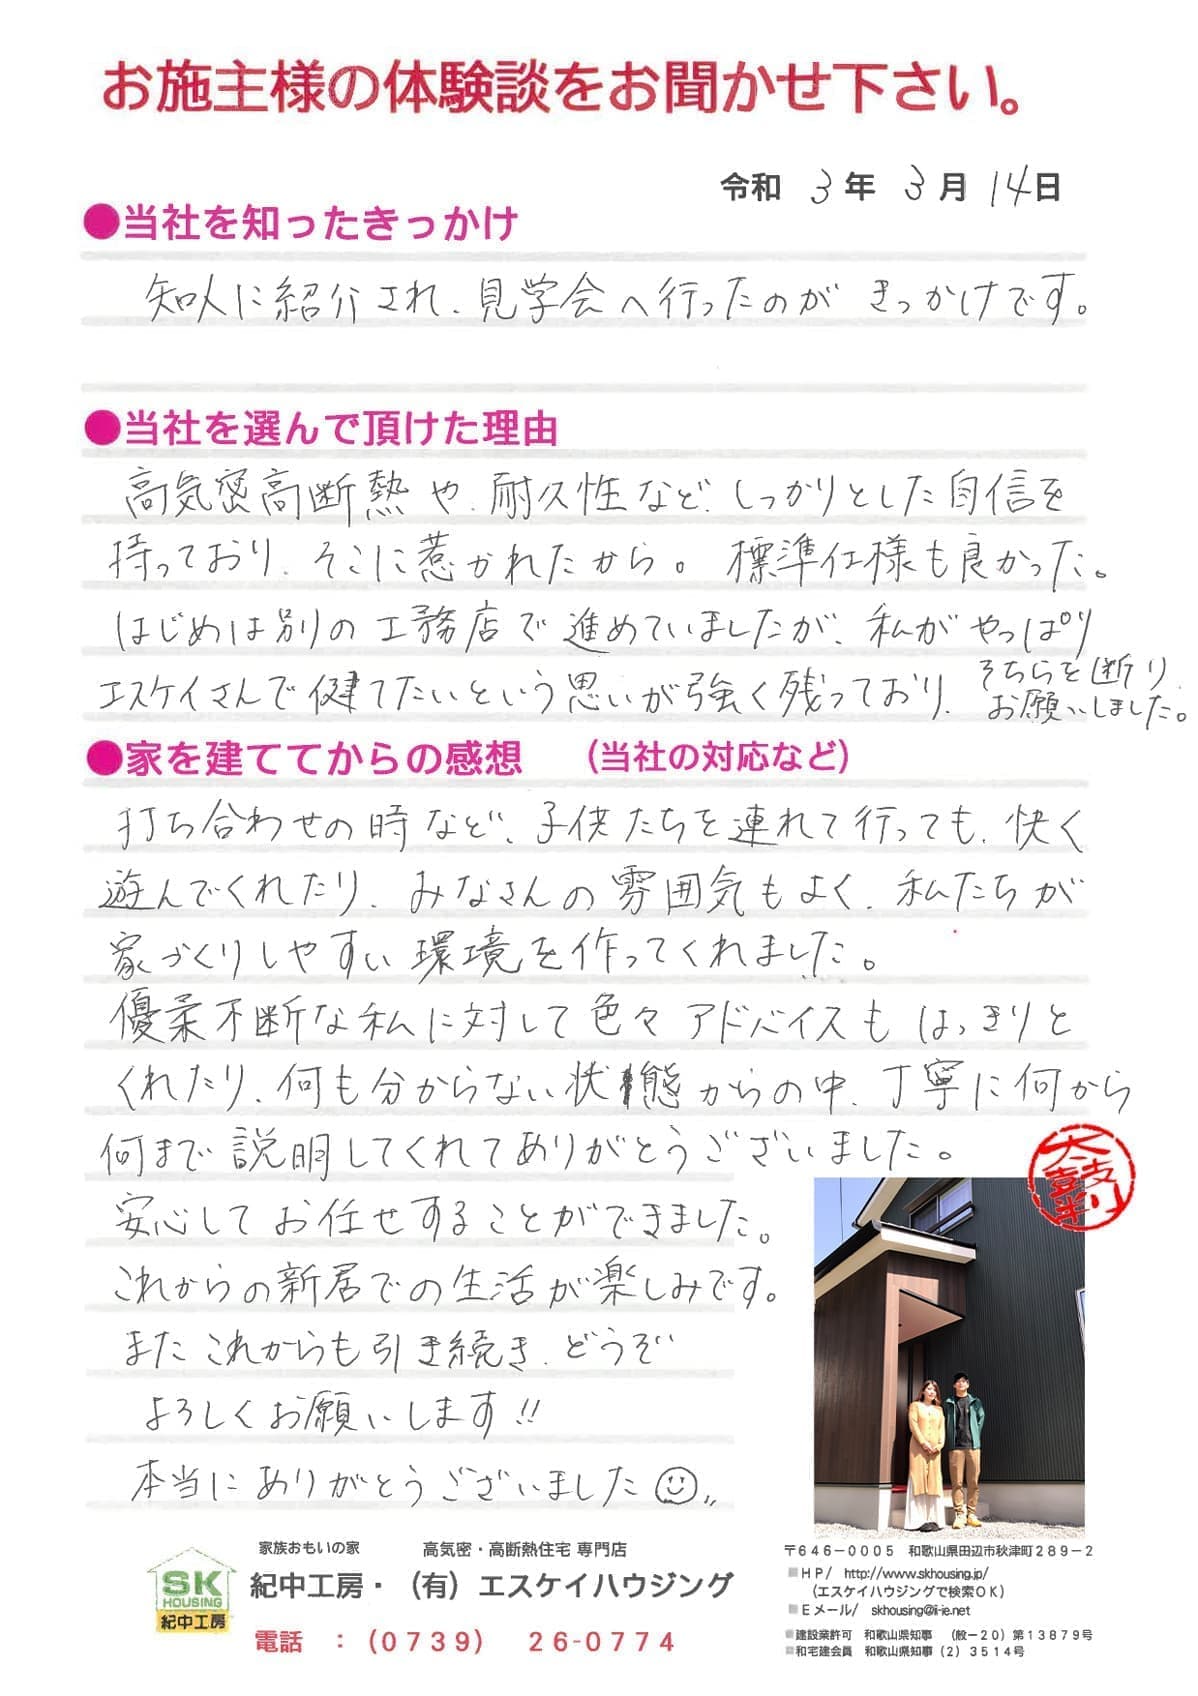 お施主様の体験談をお聞かせ下さい。
令和 3年 3月 14日
●当社を知ったきっかけ
知人に紹介され、見学会へ行ったのが きっかけです。
●当社を選んで頂けた理由
高気密高断熱や、耐久性など、しっかりとした自信を
持っており、そこに惹かれたから。標準仕様も良かった。
はじめは別の工務店で進めていましたが、私がやっぱり
エスケイさんで健てたいという思いが強く残っており、そちらを断り、
お願いしました。
●家を建ててからの感想 （当社の対応など）
打ち合わせの時など、子供たちを連れて行っても、快く
遊んでくれたり、みなさんの雰囲気もよく、私たちが
家づくりしやすい環境を作ってくれました。
優柔不断な私に対して色々アドバイスもはっきりと
くれたり、何も分からない状態からの中、丁寧に何から
何まで説明してくれてありがとうございました。
安心してお任せすることができました。
これからの新居での生活が楽しみです。
またこれからも引き続き、どうぞ
よろしくお願いします!!
本当にありがとうございました
太鼓判
家族おもいの家 高気密・高断熱住宅 専門店
SK HOUSING 紀中工房
紀中工房・（有）エスケイハウジング
電話 ：（0739） 26-0774
〒646-0005 和歌山県田辺市秋津町289-2
■HP/ http://www.skhousing.jp/
（エスケイハウジングで検索OK）
■Eメール/ skhousing@ii-ie.net
■建設業許可 和歌山県知事 （般-20）第13879号
■和宅建会員 和歌山県知事（2）3514号